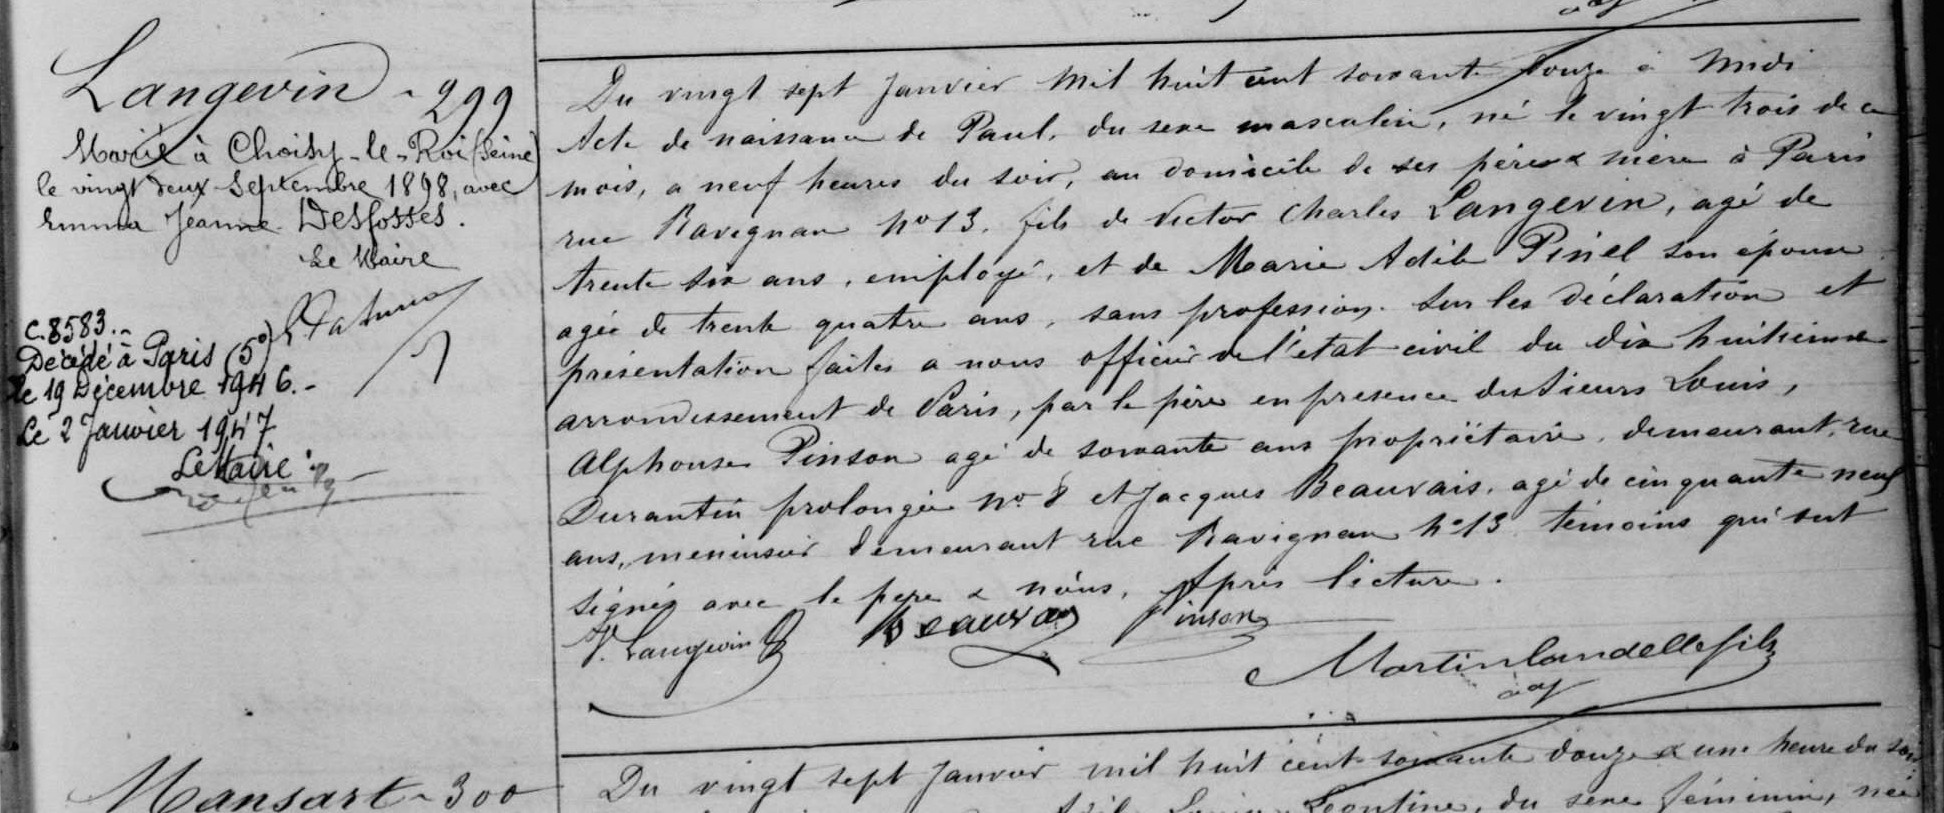 Langevin - 299
Marié à Choisy-le-Roi (Seine)
le vingt deux Septembre 1898, avec
Emma Jeanne Desfosses.
Le Maire
C.8583.-
Décédé à Paris (5e)
le 19 Décembre 1946.-
Le 2 Janvier 1947
Le Maire
Du vingt sept Janvier Mil huit cent soixante douze à Midi
Acte de naissance de Paul, du sexe masculin, né le vingt trois de ce
mois, a neuf heures du soir, au domicile de ses père & mère à Paris
rue Ravignan No 13, fils de Victor Charles Langevin, agé de
trente six ans, employé, et de Marie Adèle Pinel son épouse
agée de trente quatre ans, sans profession. Sur les déclaration et
présentation faites a nous officier de l'état civil du dix huitième
arrondissement de Paris, par le père en presence des Sieurs Louis,
Alphonse Pinson agé de soixante ans propriétaire, demeurant, rue
Durantin prolongée No 8 et Jacques Beauvais, agé de cinquante neuf
ans, menuisier demeurant rue Ravignan No 13 témoins qui ont
signés avec le pere & nous, Après lecture.
V. Langevin Beauvais Pinson
Martinlandelle fils
Mansart - 300
Du vingt sept Janvier mil huit cent soixante douze à une heure du soir
Léontine, du sexe féminin, née